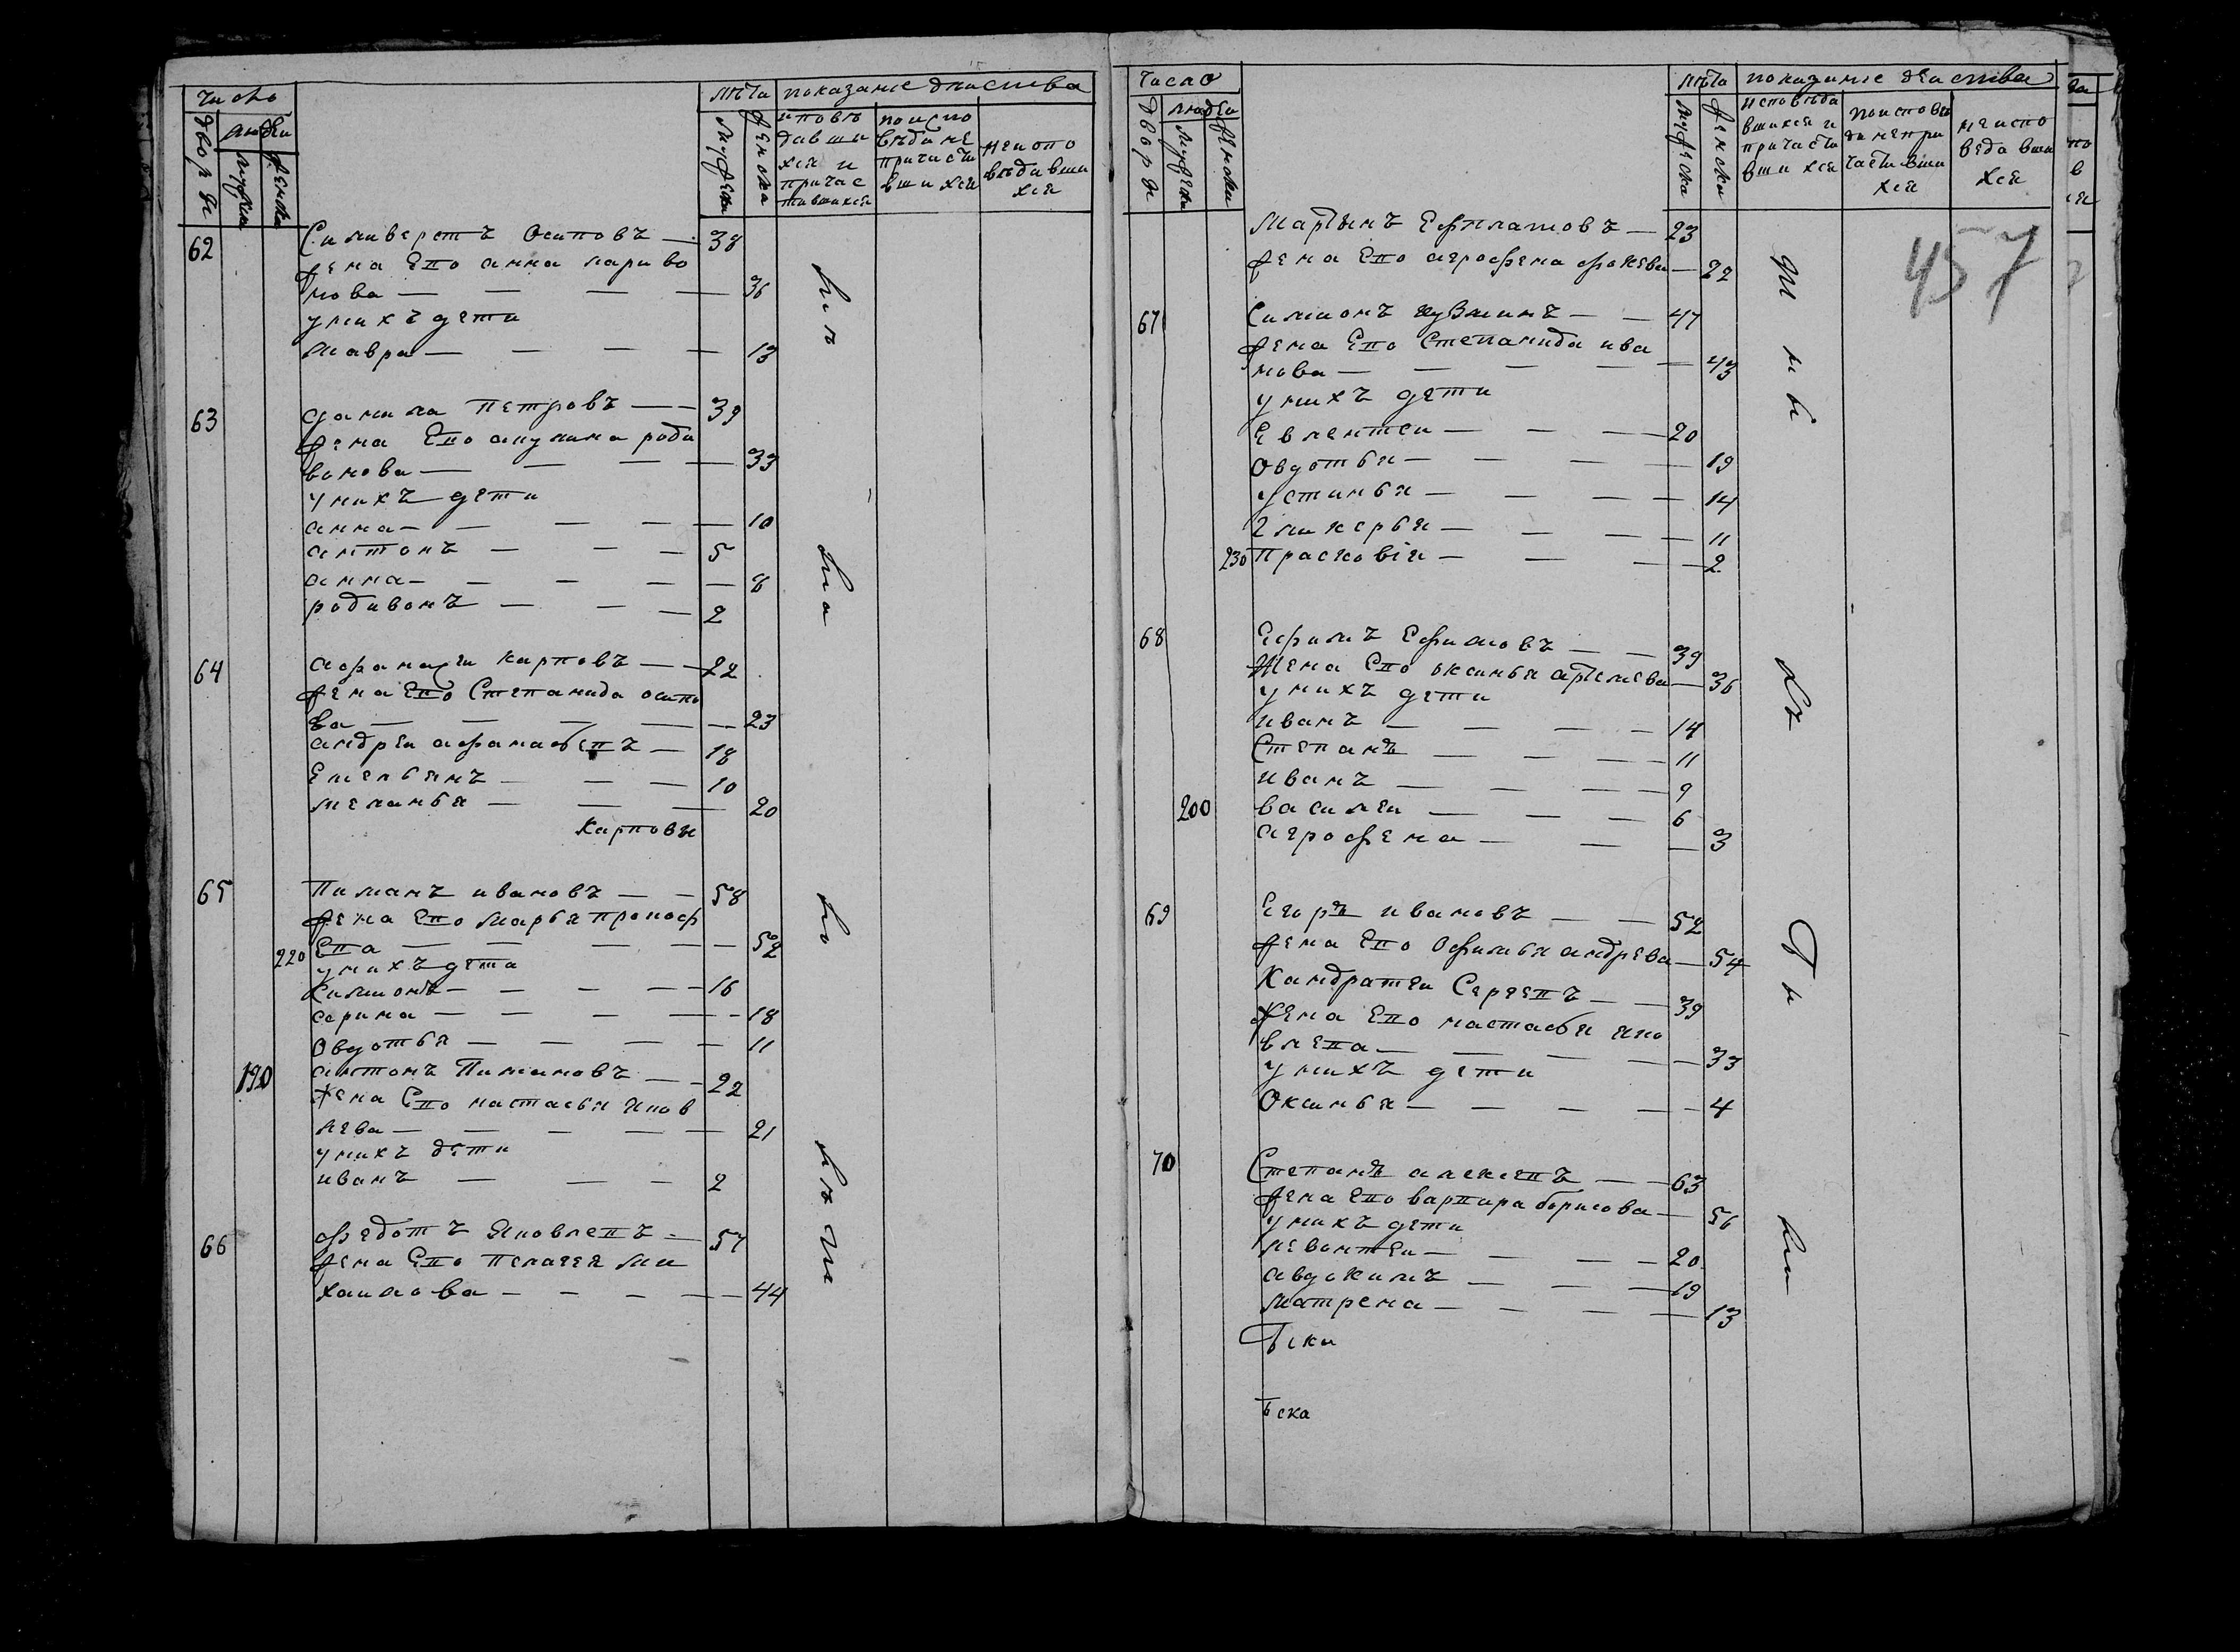 число
лѣта показанїе дѣиства
двор ы
людеи
мужеск
женска
мужеска
женска
исповѣ
давши
хся и
причас
тившихся
поиспо
вѣди не
причасти
вшихся
неиспо
вѣдавши
хся
62 Силиверстъ Осиповъ — 38
жена Его анна лариво
нова — — — — 36
унихъ дети
мавра — — — — 13
63 данила Петровъ — — 39
жена Его акулина роди
вонова — — — — 33
унихъ дети
анна — — — — — 10
антонъ — — — 5
анна — — — — — 8
родивонъ — — — 2
64 афанасеи карповъ — — 22
жена Его Степанида осипо
ва — — — — — 23
андреи афанасьевъ — 18
Емельянъ — — — 10
меланья — — — 20
Карповы
65 Пиманъ ивановъ — — 58
жена Его марья прокоф
220 Ева — — — — — 52
унихъ дети
Симионъ — — — — 16
арина — — — — — 18
Овдотья — — — — 11
190 антонъ Пимановъ — — 22
жена Его настасья Яков
лева — — — — — 21
унихъ дети
иванъ — — — 2
66 федотъ Яковлевъ — 57
жена Его Пелагея ми
хаилова — — — — — 44
число
лѣта показанїе дѣиства
дворы
людеи
мужеск
женски
мужеска
женски
исповѣда
вшихся и
причасти
вшихся
поисповѣ
ди непри
частивши
хся
неиспо
веда вши
хся
457
Мартынъ Ефилатовъ — 23
жена Его агрофена фокева — 22
67 Симионъ кузминъ — — 47
жена Его Степанида ива
нова — — — — — 43
унихъ дети
Евлентеи — — — 20
Овдотья — — — — 19
устинья — — — — 14
гликерья — — — — 11
230 Прасковїя — — — — 2
68 Ефимъ Ефимовъ — — 39
Жена Его оксинья артемева — 36
унихъ дети
иванъ — — — — 14
Степанъ — — — — 11
иванъ — — — — 9
200 василеи — — — 6
агрофена — — — 3
69 Егоръ ивановъ — — 52
жена Его Офимья андрева — 54
Кандратеи Сергевъ — — 39
жена Его настасья яко
влева — — — — — 33
унихъ дети
Оксинья — — — — — 4
70 Степанъ алексевъ — — 63
жена его варвара борисова — 56
унихъ дети
левонтеи — — — 20
авдокимъ — — — 19
матрена — — — — 13